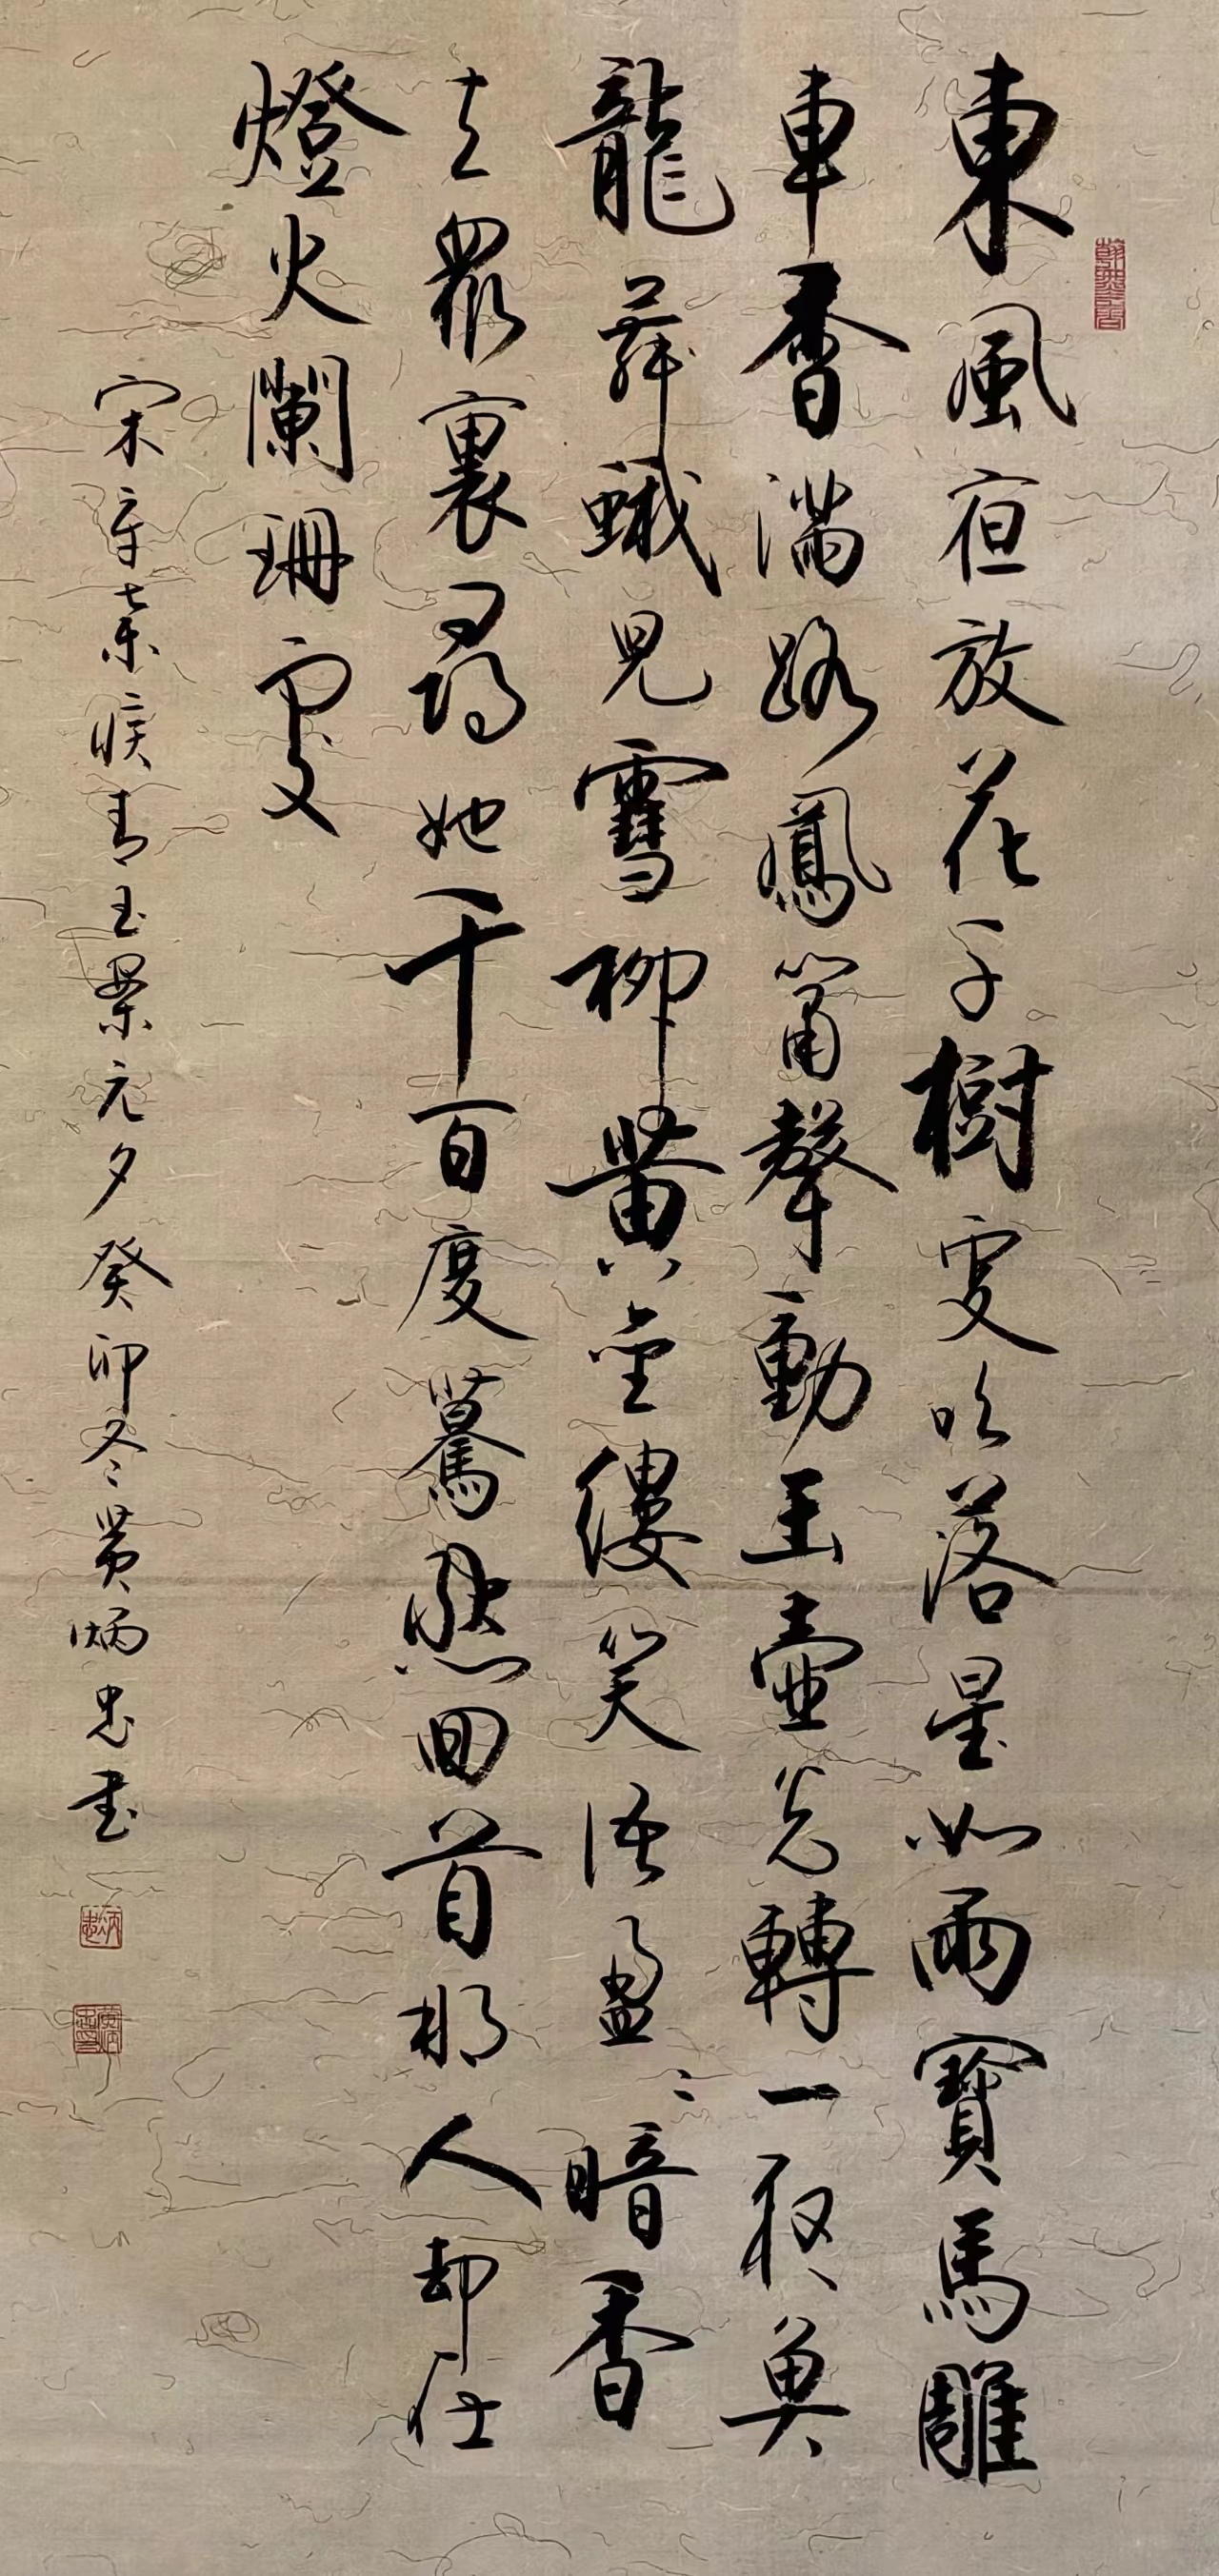 東風夜放花千樹更吹落星如雨寶馬雕
車香滿路鳳簫聲動玉壺光轉一夜魚
龍舞蛾兒雪柳黃金縷笑語盈〻暗香
去眾裏尋她千百度驀然回首那人却在
燈火闌珊處
宋辛棄疾青玉案元夕癸卯冬黃炳忠書
炳忠